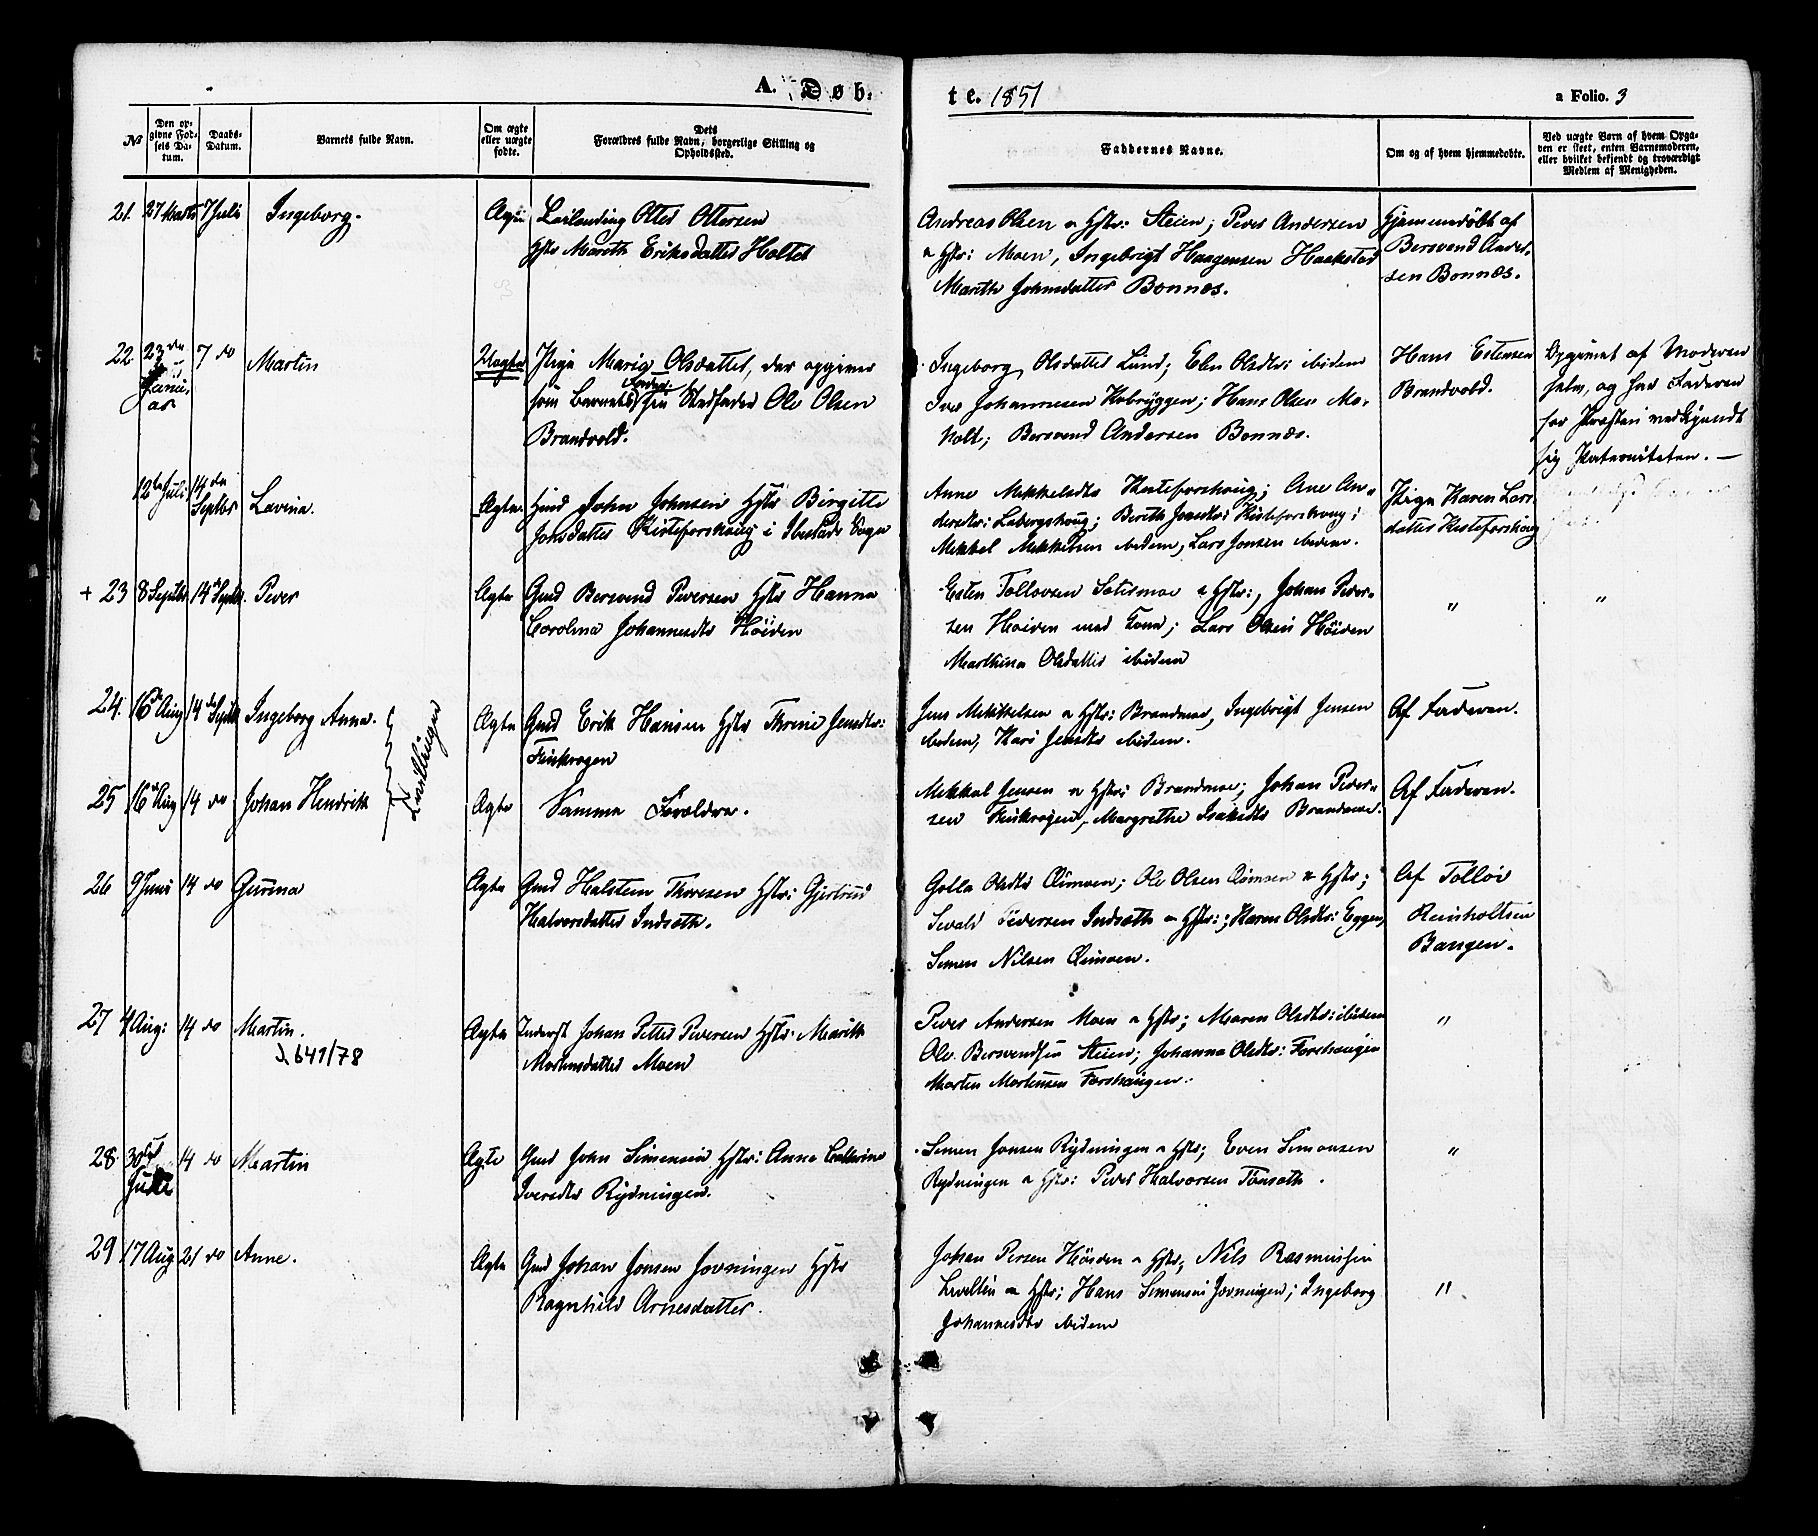 A. Døb.
te. 1851
a Folio. 3
№
Den opgivne Fødsels Datum.
Daabs-Datum.
Barnets fulde Navn.
Om ægte eller uægte fødte.
Dets Forældres fulde Navn, borgerlige Stilling og Opholdssted.
Faddernes Navne.
Om og af hvem hjemmedøbte.
Ved uægte Børn af hvem Opgaven er skeet, enten Barnemoderen, eller hvilket bekjendt og troværdigt Medlem af Menigheden.
21. 27 Marts 7 Juli Ingeborg. Ægte Leilending Otter Ottersen
Hstr Mareth Eriksdatter Holtet
Andreas Olsen & Hstr: Steien; Peder Andersen
& Hstr: Moen, Ingebrigt Haagensen Haakstad
Marethe Johnsdatter Bonnes.
Hjemmedøbt af
Bersvend Ander-
sen Bonnes.
22. 23de Januar 7 do Martin Uægte Pige Marig Olsdatter, der opgiver
som Barnets Fader sin Stedfader Ole Olsen
Brandvold.
Ingeborg Olsdatter Lund; Elen Olsdtr: ibidem
Iver Johannesen Kobryggen; Hans Olsen Mo-
holt; Bersvend Andersen Bonnes.
Hans Estensen
Brandvold.
Opgivet af Moderen
selv, og har Faderen
for Præsten vedkjendt
sig Paterniteten. —
12te Juli 14de Septbr Lavina. Ægte Gmd John Johnsen Hstr Birgitte
Jonsdatter Kisteforshoug i Ibestads Sogn
Anne Mekkelsdtr Kisteforshoug; Ane An-
dersdtr: Lobergshoug; Bereth Jonsdtr: Kisteforshoug;
Mekkel Mekkelsen ibidem, Lars Jonsen ibidem.
Pige Karen Lars
datter Kisteforshoug
+ 23 8 Septbr 14de Septbr. Peder Ægte Gmd Bersvend Pedersen Hstr Hanna
Carolina Johannesdtr Høiden
Esten Tollovsen Setermoe & Hstr:, Johan Peder-
sen Høiden med Kone; Lars Olsen Høiden
Marthina Olsdatter ibidem
" "
24. 16de Aug 14de Septbr Ingeborg Anna. Tvillinger Ægte Gmd Erik Hansen Hstr Thrine Jensdtr:
Finkrogen
Jens Mekkelsen & Hstr: Brandmoe, Ingebrigt Jensen
ibidem, Kari Jensdtr ibidem.
Af Faderen.
25 16de Aug 14 do Johan Hendrik Ægte Samme Forældre.
Mekkel Jensen & Hstr: Brandmoe; Johan Peder-
sen Finkrogen, Margrethe Isaksdtr Brandmoe.
Af Faderen.
26 9 Juni 14 do Gurina Ægte Gmd Halsten Thoresen Hstr: Gjertrud
Halvorsdatter Indseth.
Golla Olsdtr Rimoen; Ole Olsen Rimoen & Hstr;
Sivald Pedersen Indseth & Hstr:; Karen Olsdtr: Eggen,
Simen Nilsen Rimoen.
Af Tollöv
Reinholtsen
Bangen.
27 4 Aug: 14 do Martin. Ægte Inderst Johan Petter Pedersen Hstr: Mareth
J. 641/78
Mortensdatter Moen
Peder Andersen Moen & Hstr; Maren Olsdtr: ibidem
Ole Bersvendsen Steien; Johanna Olsdtr: Forshougen
Morten Mortensen Forshougen.
"
28. 30de Juli 14 do Martin Ægte Gmd John Simensen Hstr: Anne Cathrine
Iversdtr Rydningen.
Simen Jonsen Rydningen & Hstr; Even Simonsen
Rydningen & Hstr: Peder Halvorsen Fosseth.
"
29 17 Aug 21 do Anne. Ægte Gmd Johan Jonsen Jovningen Hstr
Ragnhild Arnesdatter.
Johan Persen Høiden & Hstr; Nils Rasmussen
& Hstr; Hans Simensen Jovningen; Ingeborg
Johannesdtr ibidem
"